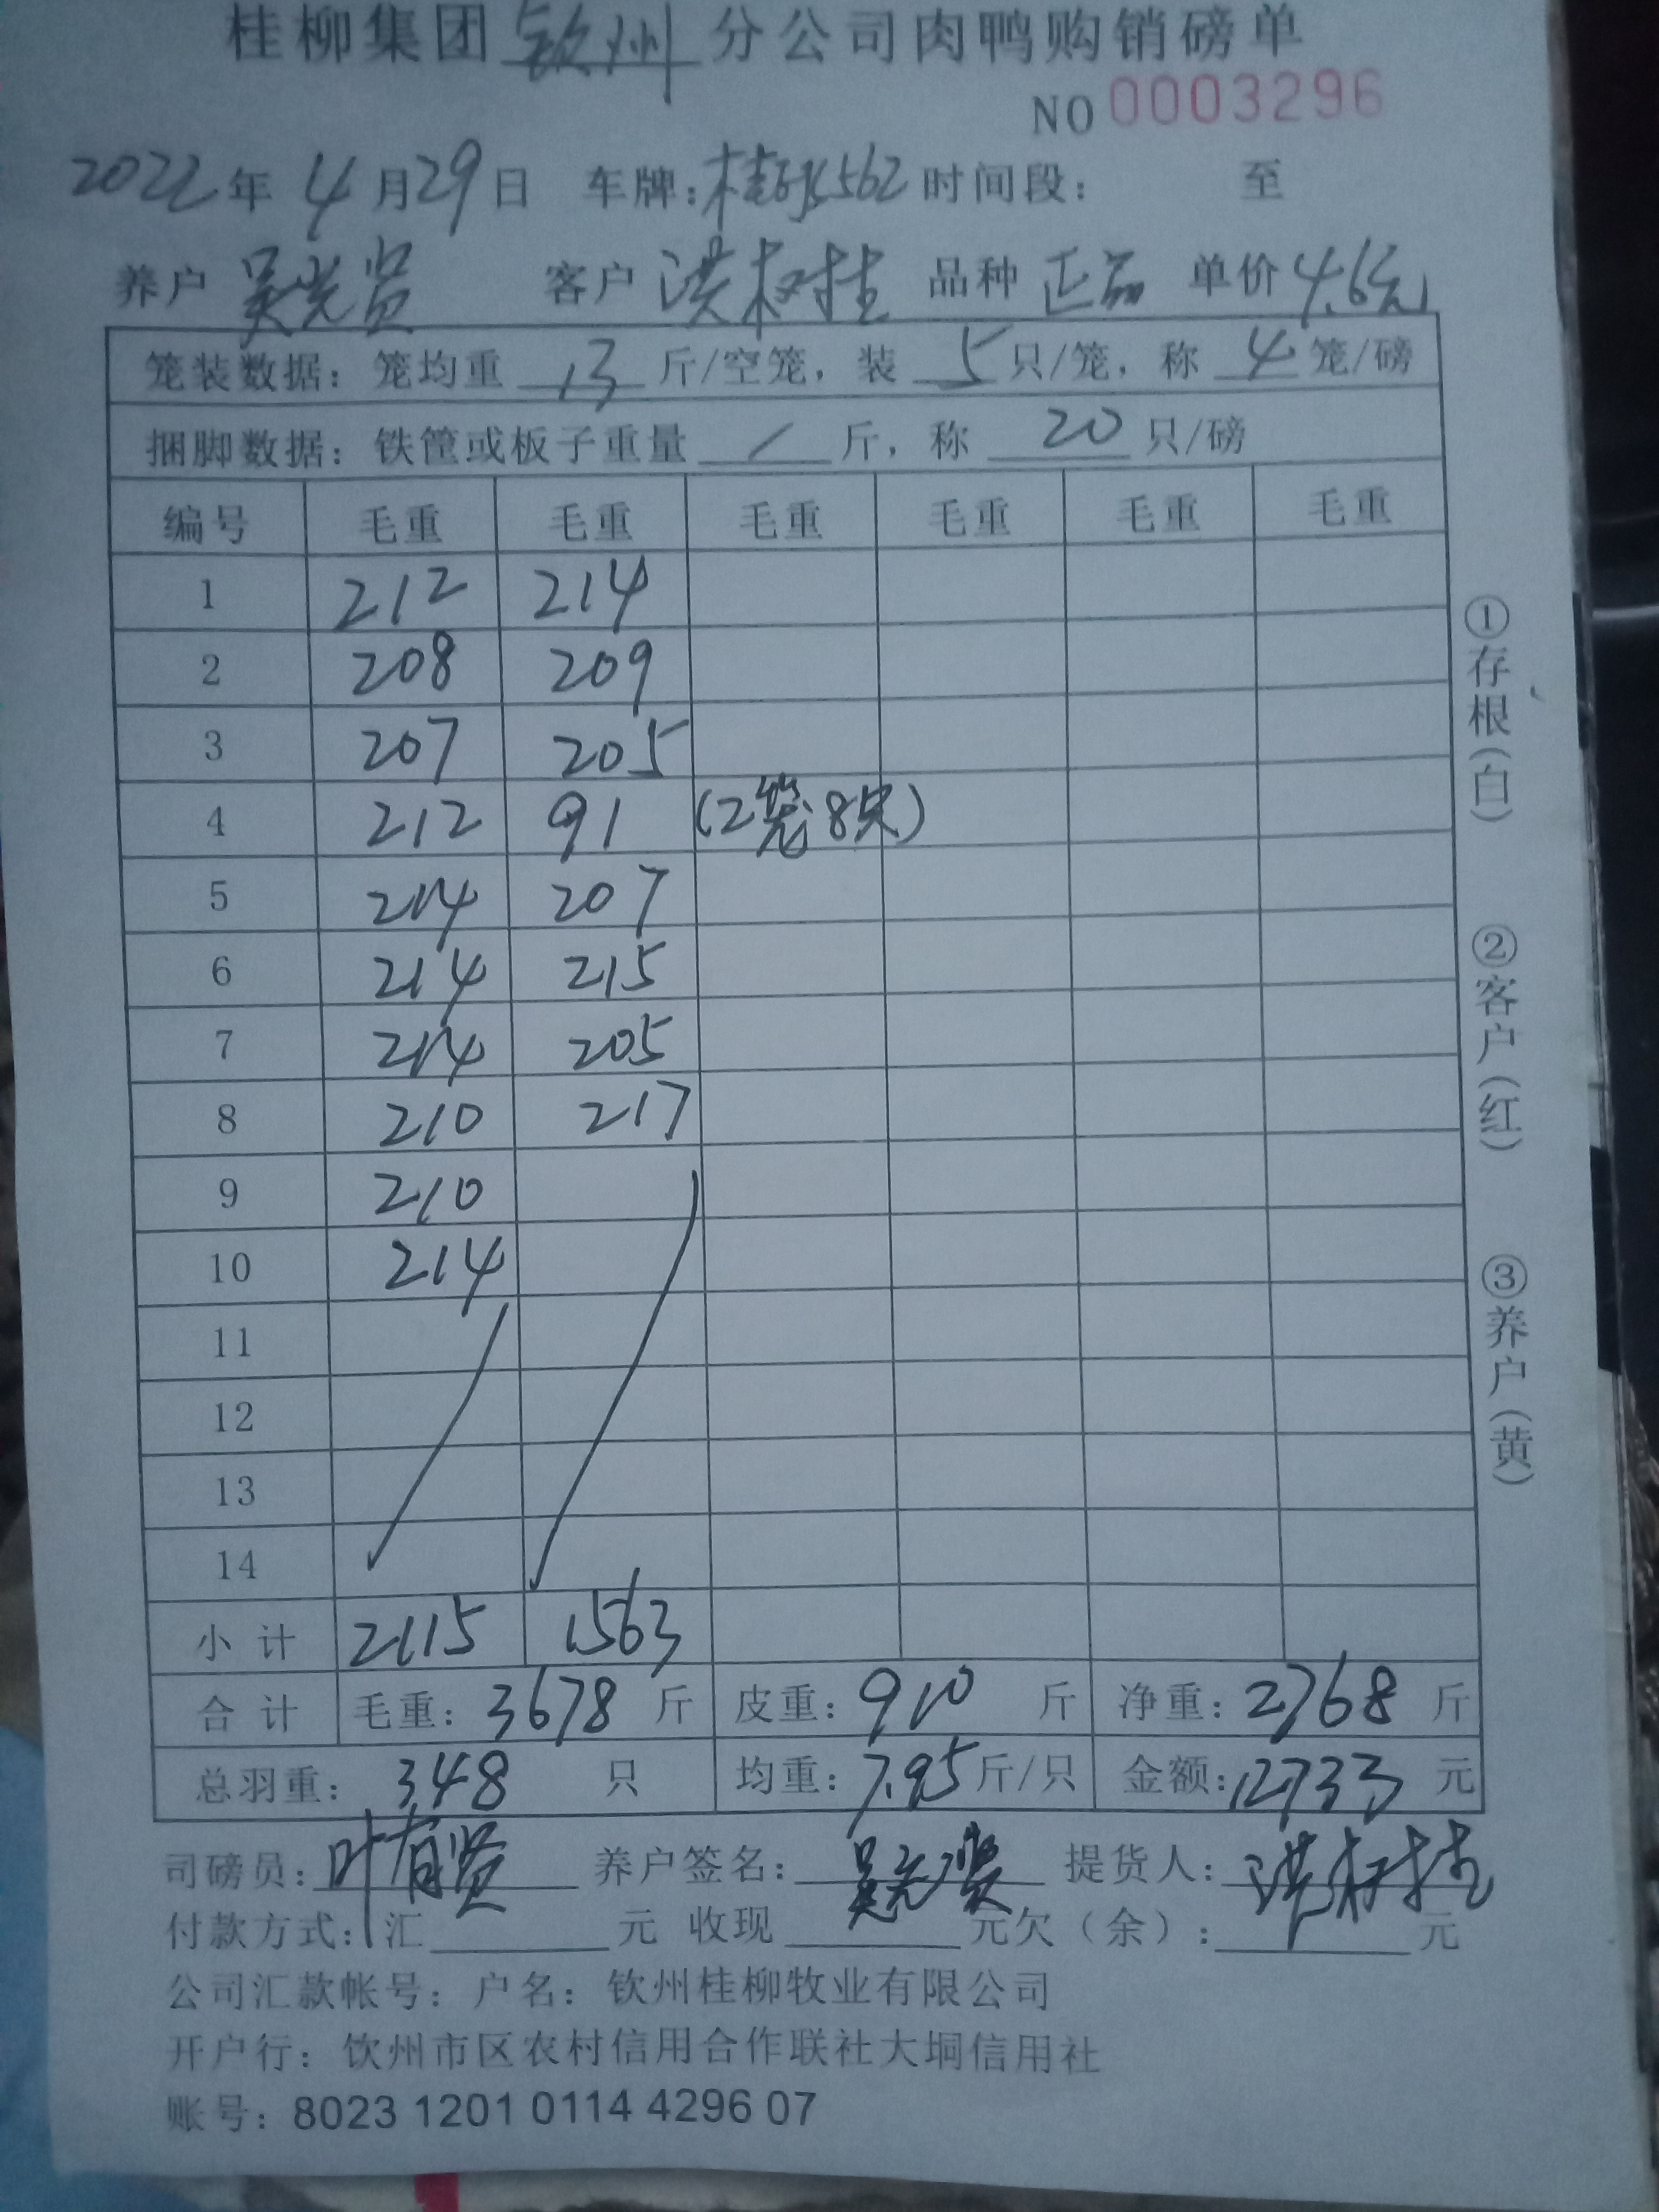 桂柳集团 钦州 分公司肉鸭购销磅单
NO 0003296
2022年 4月29日 车牌：桂 562 时间段： 至
养户 吴光贤 客户 洪树桂 品种 正品 单价 4.6元
笼装数据：笼均重 13 斤/空笼，装 5 只/笼，称 4 笼/磅
捆脚数据：铁筐或板子重量 / 斤，称 20 只/磅
编号 毛重 毛重 毛重 毛重 毛重 毛重
1 212 214
2 208 209
3 207 205
4 212 91 (2笼8只)
5 214 207
6 214 215
7 214 205
8 210 217
9 210
10 214
11
12
13
14
小计 2115 1563
合计 毛重：3678 斤 皮重：910 斤 净重：2768 斤
总羽重：348 只 均重：7.95斤/只 金额：12733 元
司磅员：叶有贤 养户签名：吴光贤 提货人：洪树桂
付款方式：汇 元 收现 元欠（余）： 元
公司汇款帐号：户名：钦州桂柳牧业有限公司
开户行：钦州市区农村信用合作联社大垌信用社
账号：8023 1201 0114 4296 07
①存根（白）
②客户（红）
③养户（黄）